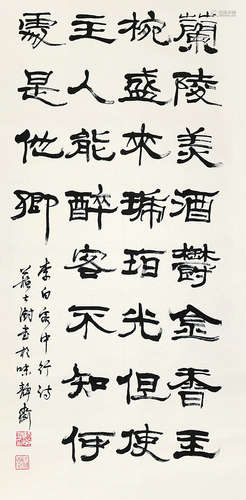 蘭陵美酒鬱金香玉
椀盛來琥珀光但使
主人能醉客不知何
處是他鄉
李白客中行诗
蘇士澍书於味靜齋